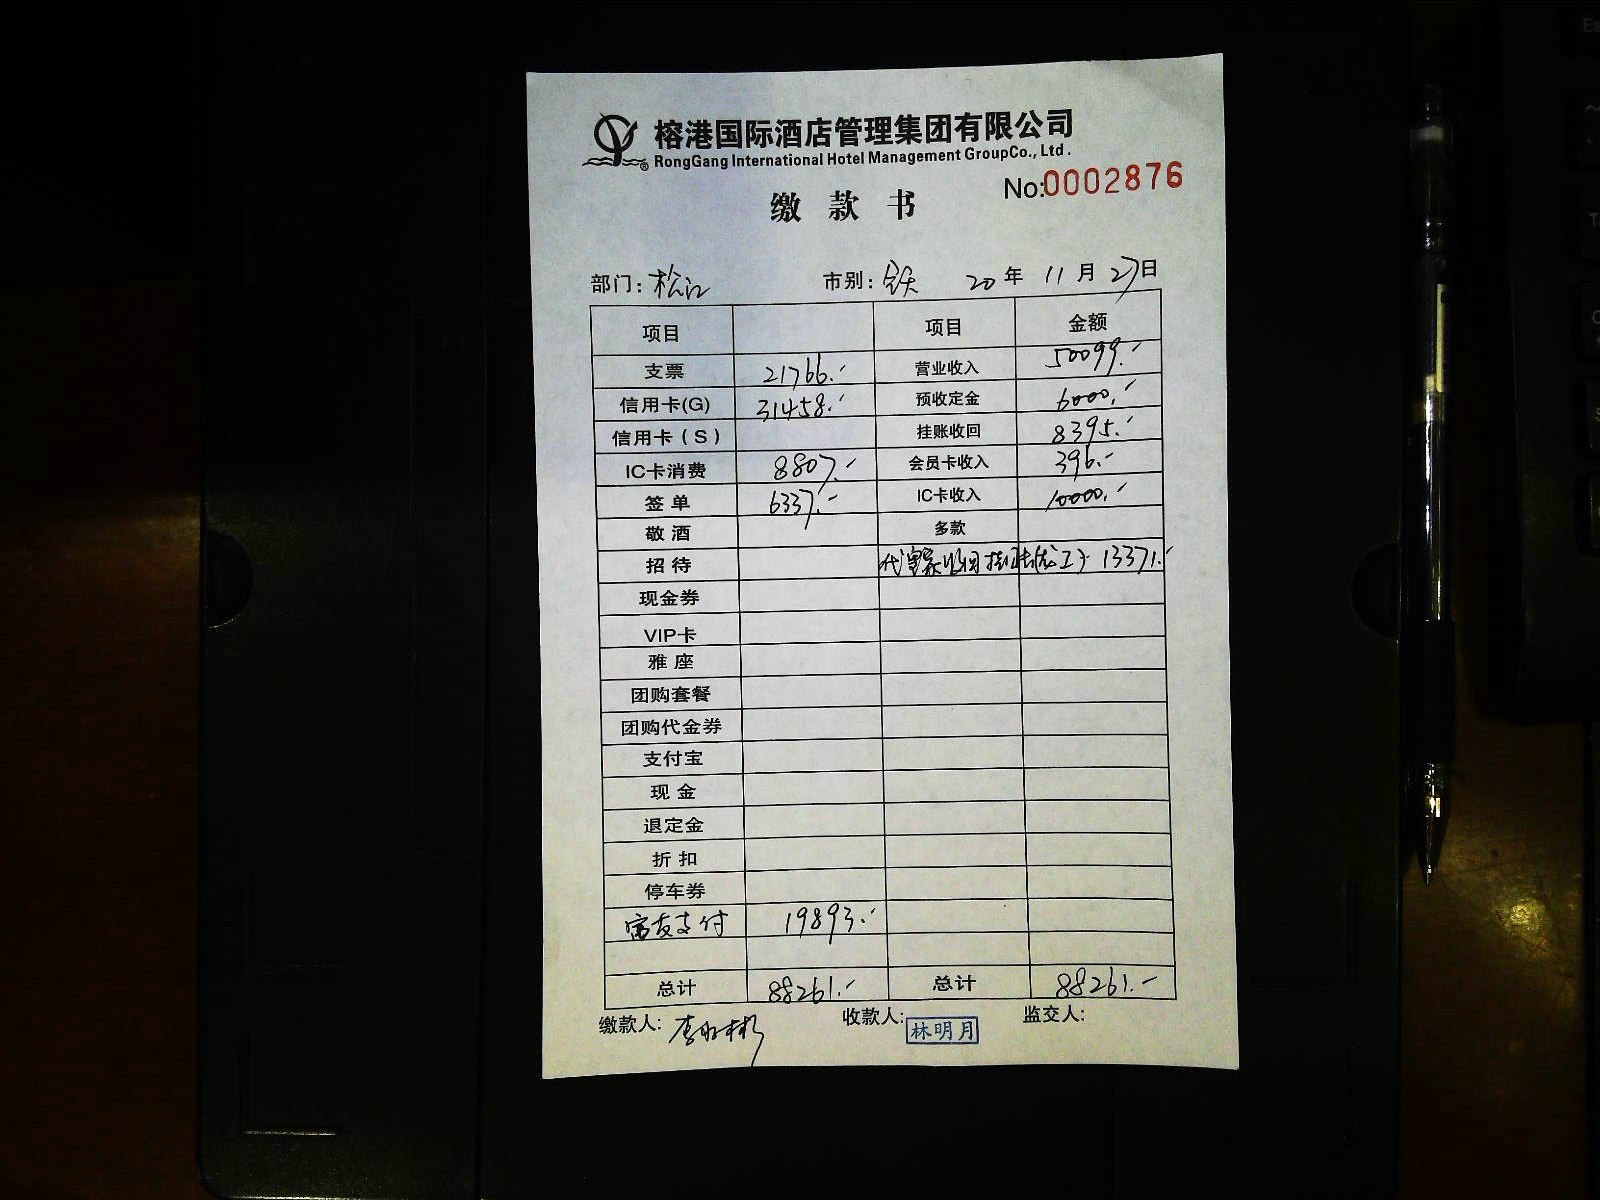 榕港国际酒店管理集团有限公司
RongGang International Hotel Management GroupCo., Ltd.
No:0002876
缴款书
部门: 松江 市别: 全天 20年 11月 27日
项目 项目 金额
支票 21766.- 营业收入 50099.-
信用卡(G) 31458.- 预收定金 6000.-
信用卡(S) 挂账收回 8395.-
IC卡消费 8807.- 会员卡收入 396.-
签单 6337.- IC卡收入 10000.-
敬酒 多款
招待 代 收回挂账 13371.-
现金券
VIP卡
雅座
团购套餐
团购代金券
支付宝
现金
退定金
折扣
停车券
支付 19893.-
总计 88261.- 总计 88261.-
缴款人: 李 彬 收款人: 林明月 监交人: